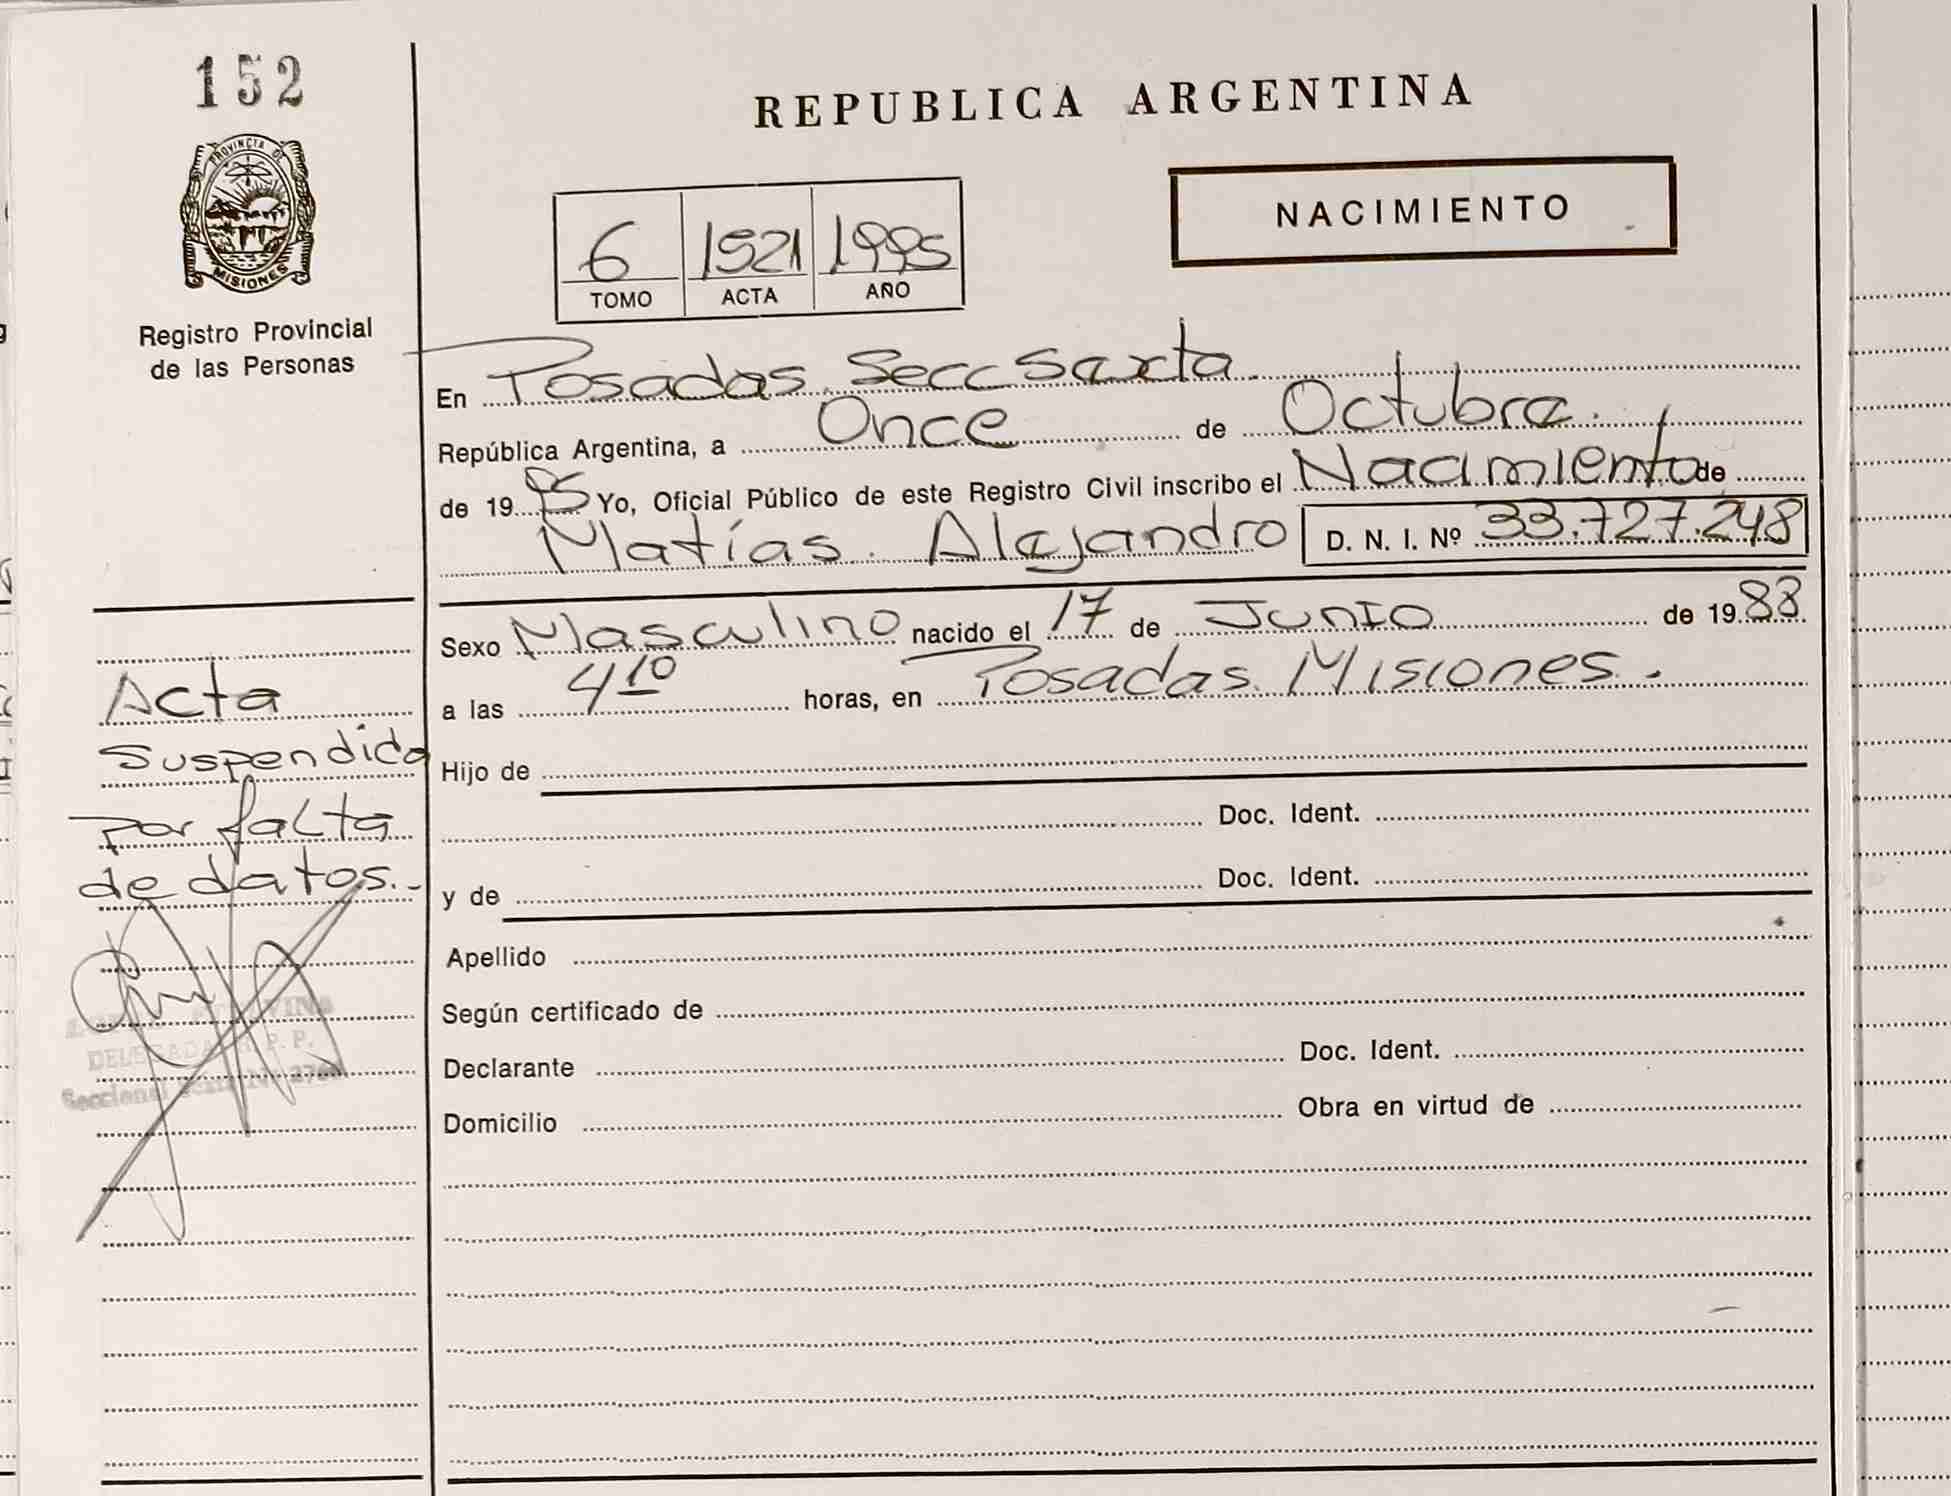 152
REPUBLICA ARGENTINA
PROVINCIA DE
MISIONES
Registro Provincial
de las Personas
NACIMIENTO
6 1521 1995
TOMO ACTA AÑO
En Posadas. Secc Sexta
República Argentina, a Once de Octubre.
de 19 95 Yo, Oficial Público de este Registro Civil inscribo el Nacimiento de
Matías. Alejandro D. N. I. Nº 33.727.248
Sexo Masculino nacido el 17 de Junio de 19 88
a las 4 10 horas, en Posadas. Misiones.
Hijo de
Doc. Ident.
y de Doc. Ident.
Apellido
Según certificado de
Declarante Doc. Ident.
Domicilio Obra en virtud de
Acta
Suspendida
Por falta
de datos.-
DELEGADA R. P. P.
Seccional